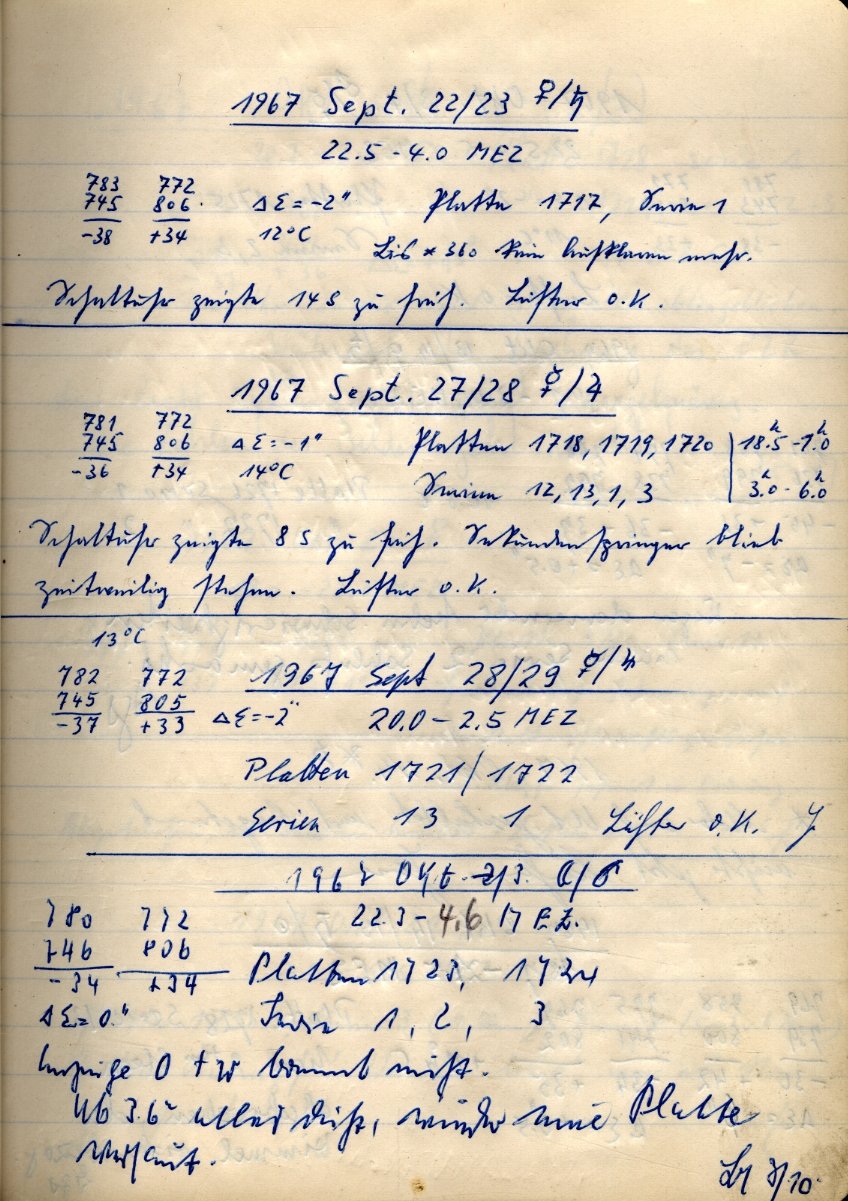 1967 Sept. 22/23 ♀/♄
22.5 - 4.0 MEZ
783 772
745 806 ΔΣ = -2" Platte 1717, Serie 1
-38 +34 12°C
Bis * 360 kein Aufklaren mehr.
Schaltuhr zeigte 14 s zu früh. Lüfter o.K.
1967 Sept. 27/28 ☿/♃
781 772
745 806 ΔΣ = -1" Platten 1718, 1719, 1720 | 18.5ʰ - 1.0ʰ
-36 +34 14°C
Serien 12, 13, 1, 3 | 3.0ʰ - 6.0ʰ
Schaltuhr zeigte 8 s zu früh. Sekundenspringer blieb
zeitweilig stehen. Lüfter o.K.
13°C
782 772 1967 Sept 28/29
745 805
-37 +33 ΔΣ = -2" 20.0 - 2.5 MEZ
Platten 1721/1722
Serien 13 1 Lüfter o.K.
1967 Okt. 2/3.
780 772 22.3 - 4.6 MEZ.
746 806
-34 +34 Platten 1723, 1724
ΔΣ = 0" Serie 1, 2, 3
Anzeige 0 + 10 kommt nicht.
Ab 3.6ʰ alles dicht, wieder eine Platte
versaut.